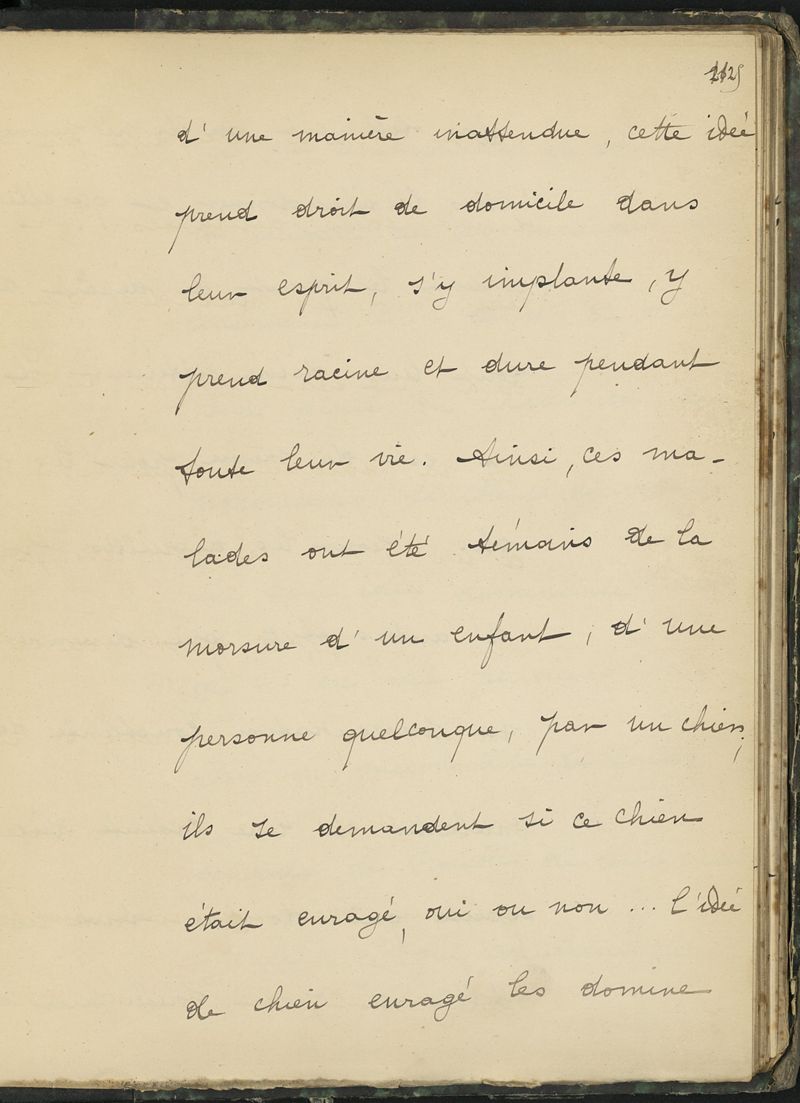 d'une manière inattendue, cette idée
prend droit de domicile dans
leur esprit, s'y implante, y
prend racine et dure pendant
toute leur vie. Ainsi, ces ma-
lades ont été témoins de la
morsure d'un enfant, d'une
personne quelconque, par un chien;
ils se demandent si ce chien
était enragé, oui ou non ... l'idée
de chien enragé les domine